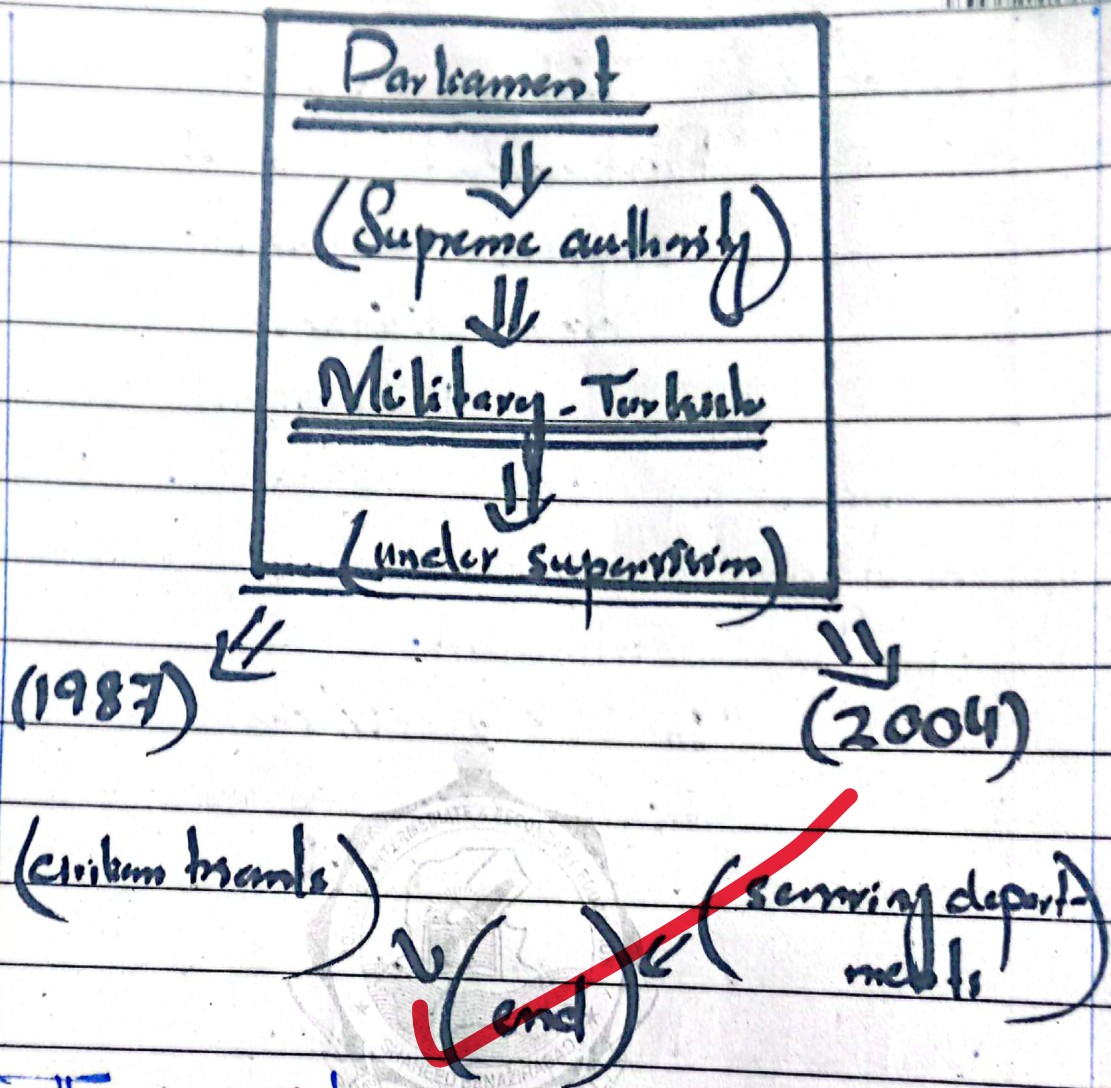 Parliament
(Supreme authority)
Military - Turkish
(under supervision)
(1987)
(2004)
(civilian
depart-
ments
(end)